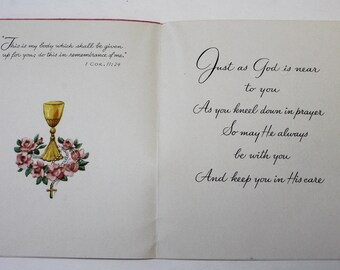 "This is my body which shall be given
up for you; do this in remembrance of me."
I Cor. 11:24
Just as God is near
to you
As you kneel down in prayer
So may He always
be with you
And keep you in His care